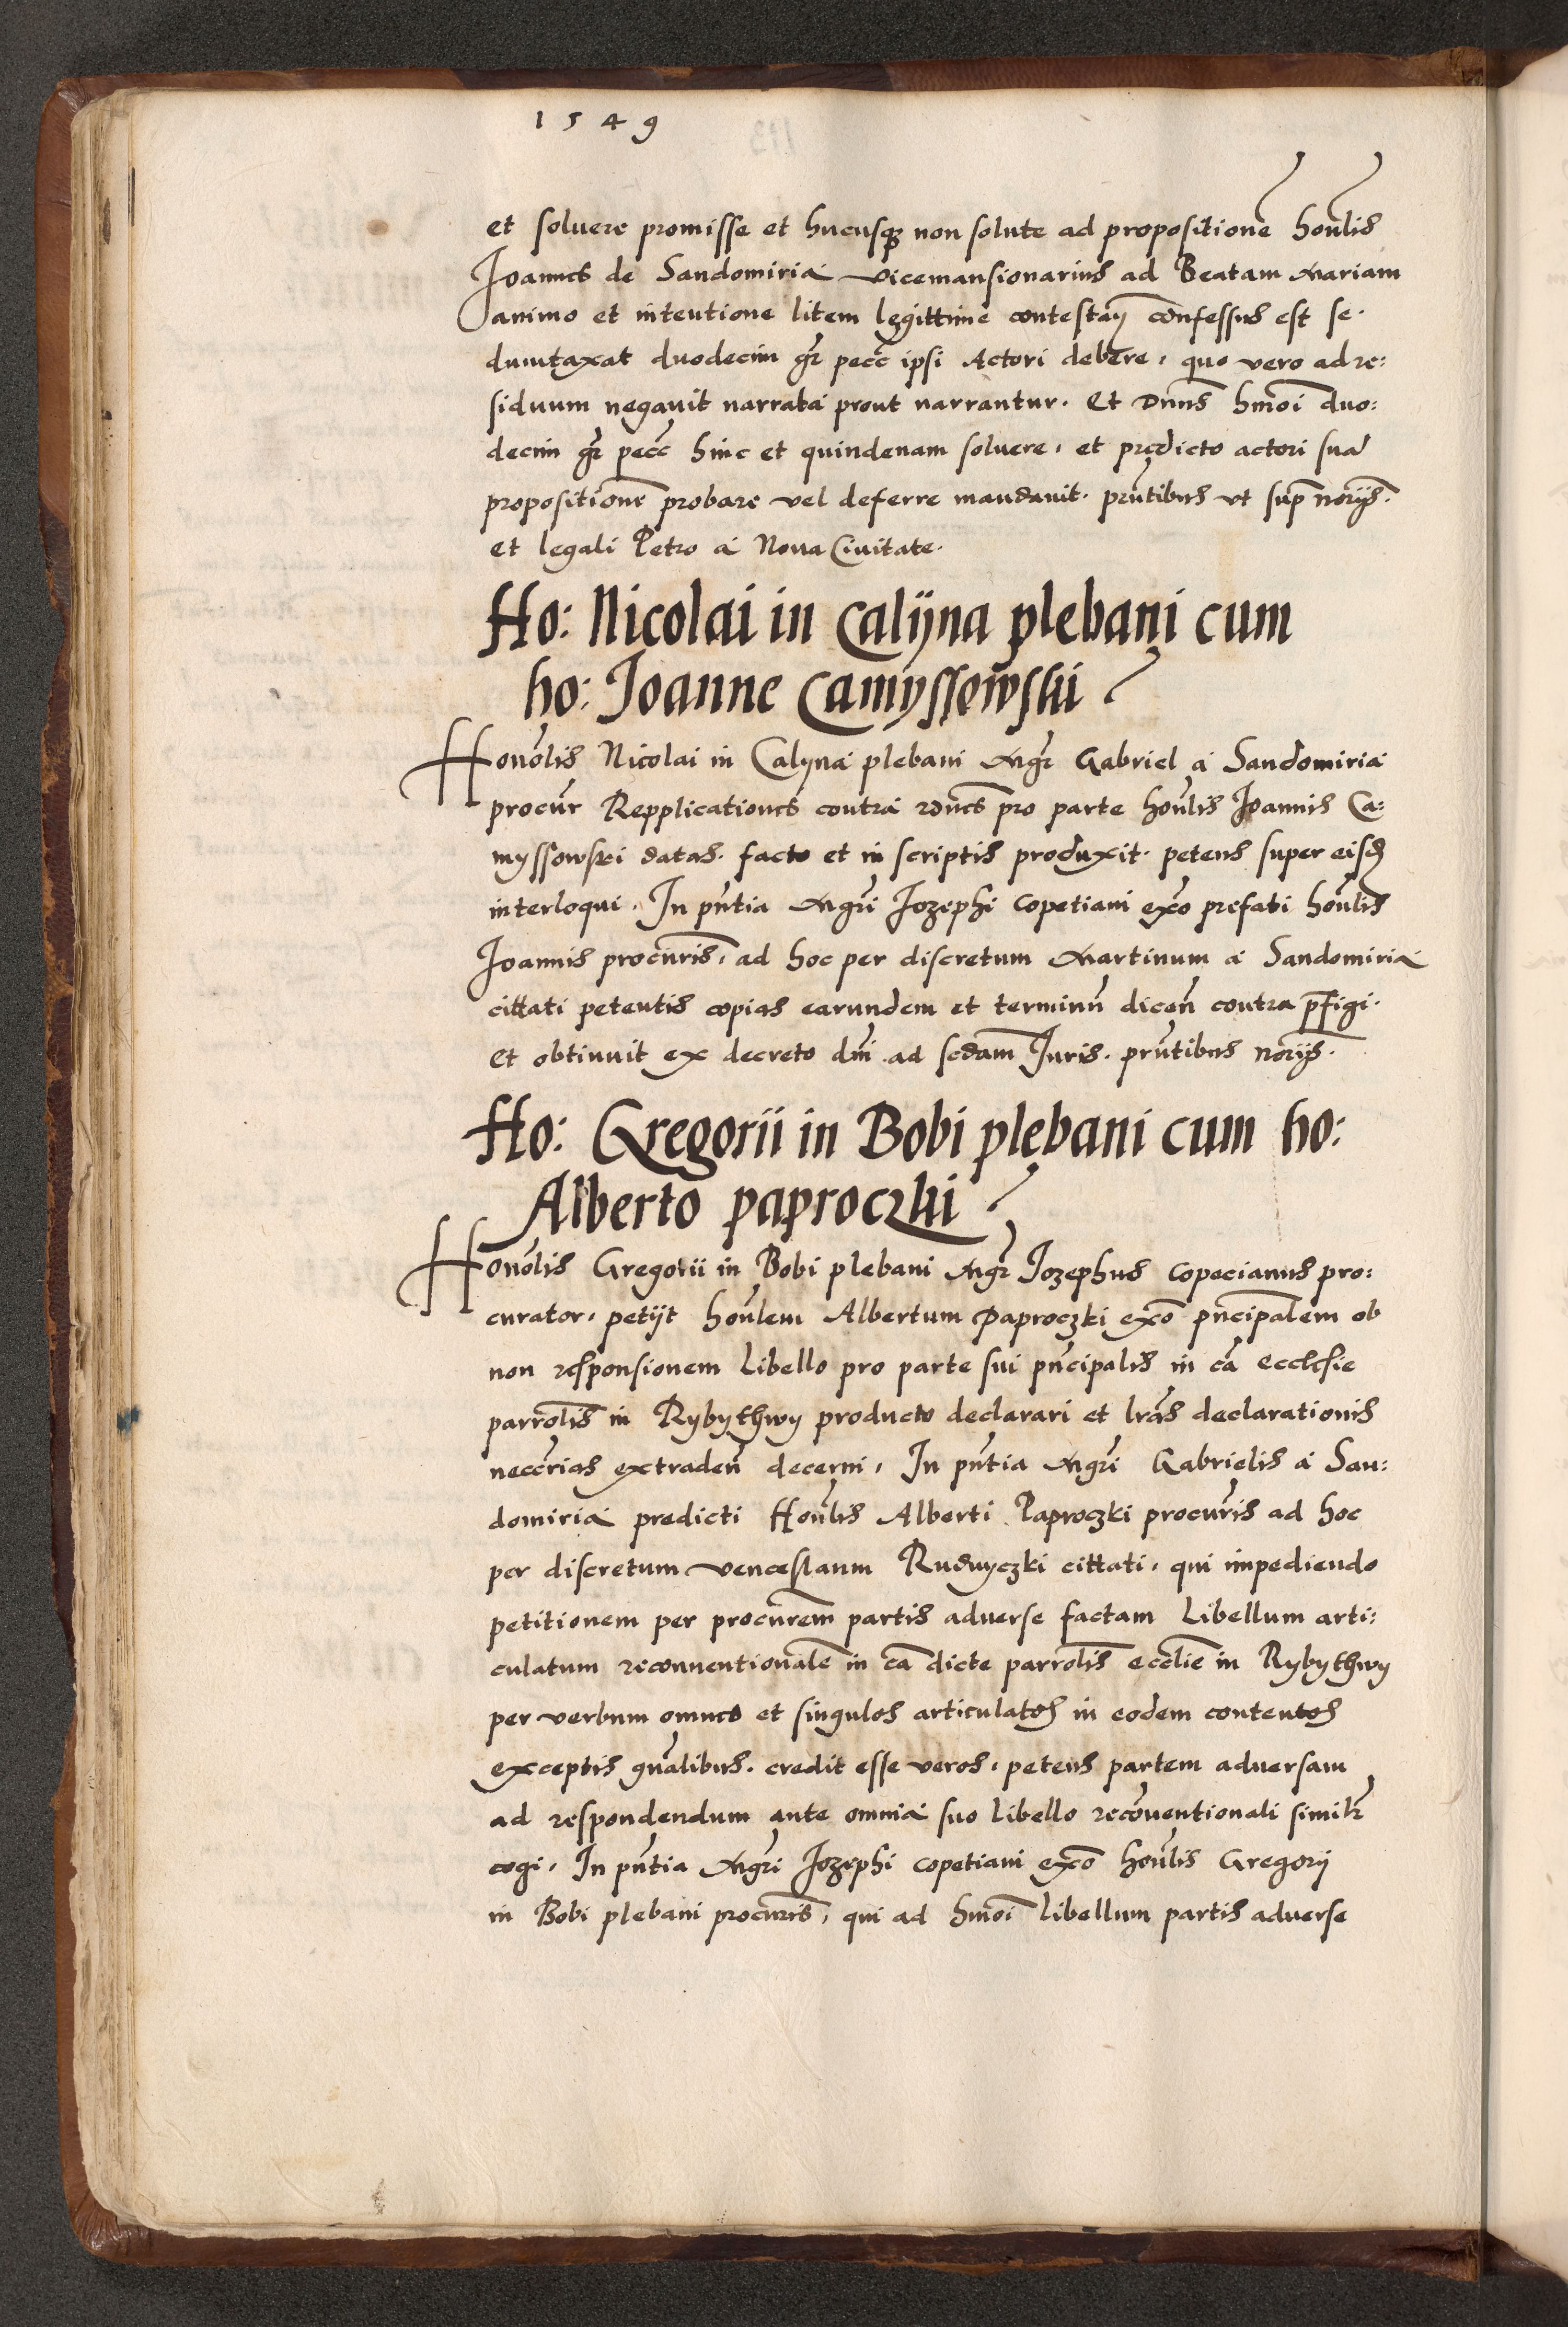 1549
et soluere promisse et hucusq3 non solute ad propositionē honlis
Joannes de Sandomiria vicemansionarius ad Beatam Mariam
animo et intentione litem legittime contestan̄ confessus est se
dumtaxat duodecim gr̄ pecc̄ ipsi Actori debere, quo vero ad re:
siduum negauit narrata prout narrantur. Et Dnn̄s hmōi duo:
decim gr̄ pecc̄ hinc et quindenam soluere, et predicto actori suā
propositionē probare vel deferre mandauit. prn̄tibus vt sup̄ norijs.
et legali Petro a Noua Ciuitate.
Ho: Nicolai in Calijna plebani cum
ho: Joanne Camyssowski
Honōlis Nicolai in Calyna plebani Mgr̄ Gabriel a Sandomiria
procur̄ Repplicationes contra rōnes pro parte honl̄is Joannis Ca:
myssowski datas. facto et in scriptis produxit. petens super eisd̄
interloqui. In pn̄tia Mgrī Jozephi Copetiani exōo prefati honl̄is
Joannis procuris̄, ad hoc per discretum Martinum a Sandomiria
cittati petentis copias earundem et terminū dicen̄ contra p̄figi.
et obtinuit ex decreto dn̄i ad sc̄dam Juris. prn̄tibus norijs̄.
Ho: Gregorii in Bobi plebani cum ho:
Alberto paproczki
Honōlis Gregorii in Bobi plebani Mgr̄ Jozephus Copecianus pro:
curator, petijt honl̄em Albertum Paproczki exōo pn̄cipalem ob
non responsionem Libello pro parte sui pn̄cipalis in cā Ecclesie
parrōlis in Rybythwy producto declarari et lrās declarationis
neccr̄ias extraden̄ decerni, In pn̄tia Mgrī Gabrielis a San:
domiria predicti Honl̄is Alberti Paproczki procur̄is ad hoc
per discretum venceslaum Rudnyczki cittati, qui impediendo
petitionem per procur̄em partis aduerse factam Libellum arti:
culatum reconuentionalē in cā dicte parrōlis ecclie in Rybythwy
per verbum omnes et singulos articulatos in eodem contentos
exceptis gn̄alibus. credit esse veros, petens partem aduersam
ad respondendum ante omnia suo Libello recōuentionali similr̄
cogi, In pn̄tia Mgrī Jozephi Copetiani exōo honl̄is Gregorij
in Bobi plebani procuris̄, qui ad hmōi Libellum partis aduerse